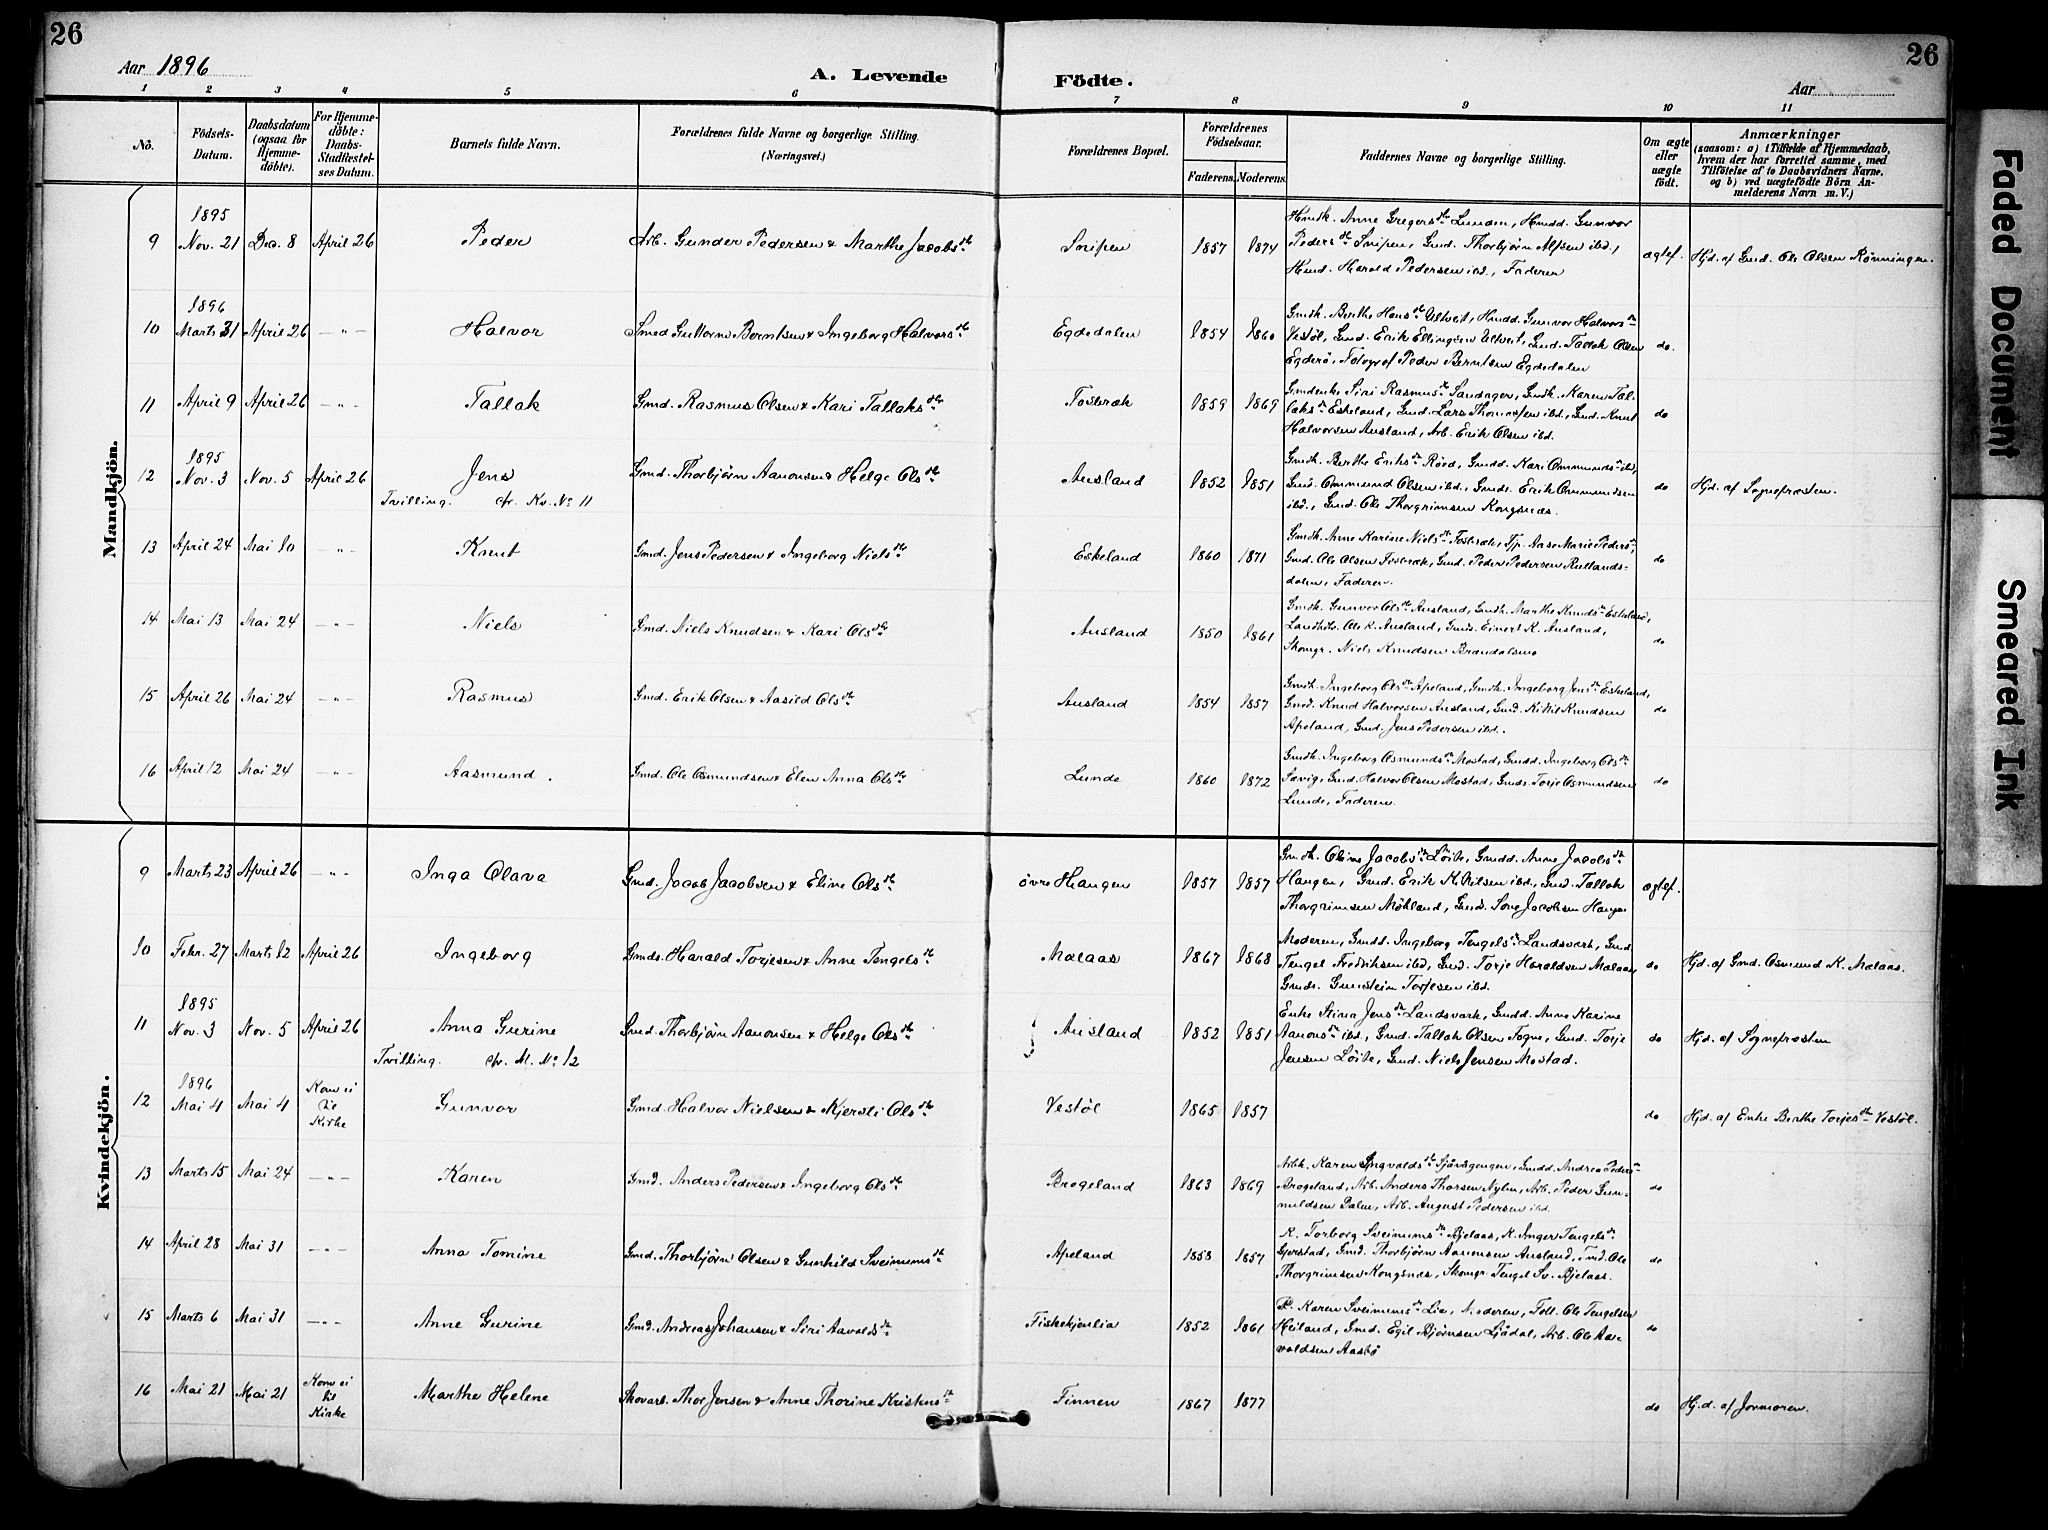 26
26
Aar 1896
A. Levende
Födte.
Aar
1 2 3 4 5 6 7 8 9 10 11
No.
Födsels-Datum.
Daabsdatum (ogsaa for Hjemmedöbte).
For Hjemmedöbte: Daabs-Stadfæstelses Datum.
Barnets fulde Navn.
Forældrenes fulde Navne og borgerlige Stilling.
(Næringsvei.)
Forældrenes Bopæl.
Forældrenes Födselsaar.
Faderens. Moderens.
Faddernes Navne og borgerlige Stilling.
Om ægte eller uægte födt.
Anmærkninger
(saasom: a) i Tilfælde af Hjemmedaab,
hvem der har forrettet samme, med
Tilföielse af to Daabsvidners Navne.
og b) ved uægtefödte Börn Anmelderens Navn m. V.)
Mandkjön.
9 1895 Nov. 21 Dec. 8 April 26 Peder Arb. Gunder Pedersen & Marthe Jacobsdtr Snipen 1857 1874
Hmdk. Anne Gregersdtr Lunden, Hmdd. Gunvor
Pedersdtr Snipen, Gmd. Thorbjørn Alfsen ibd.,
Hmd. Harald Pedersen ibd., Faderen
ægtef. Hjd. af Gmd. Ole Olsen Rønningen.
10 1896 Marts 31 April 26 — " — Halvor Smed Guttorm Berntsen & Ingeborg Halvorsdtr Egdedalen 1854 1860
Gmdk. Berthe Hansdtr Ulveit, Hmdd. Gunvor Halvorsdtr
Vestøl, Gmd. Erik Ellingsen Ulveit, Gmd. Tallak Olsen
Egderö, Fotograf Peder Berntsen Egdedalen
do.
11 April 9 April 26 — " — Tallak Gmd. Rasmus Olsen & Kari Tallaksdtr Fosbræk 1859 1869
Gmdenke Siri Rasmusdtr Sandager, Gmdk. Karen Tallaksdtr
Eskeland, Gmd. Lars Thomassen ibd., Gmd. Knut
Halvorsen Ausland, Arb. Erik Olsen ibd.
do
12 1895 Nov. 3 Nov. 5 April 26 Jens Gmd. Thorbjørn Aanonsen & Helge Olsdtr Ausland 1852 1851
Tvilling. cfr. Kv. No 11
Gmdk. Berthe Eriksdtr Røed, Gmdd. Kari Ommundsdtr ibd,
Gmd. Ommund Olsen ibd., Gmds. Erik Ommundsen
ibd., Gmd. Ole Thorgrimsen Kongsnæs.
do Hjd. af Sognepræsten.
13 April 24 Mai 10 — " — Knut Gmd. Jens Pedersen & Ingeborg Nielsdtr Eskeland 1860 1871
Gmdk. Anne Karine Nielsdtr Fosbræk, Tjp. Aase Marie Pedersdtr,
Gmd. Ole Olsen Fosbræk, Gmd. Peder Pedersen Rutlandsdalen, Faderen.
do
14 Mai 13 Mai 24 — " — Niels Gmd. Niels Knudsen & Kari Olsdtr Ausland 1850 1861
Gmdk. Gunvor Olsdtr Ausland, Gmdk. Marthe Knudsdtr Eskeland,
Landhdl. Ole K. Ausland, Gmds. Einert K. Ausland,
Skomgr. Niels Knudsen Brændalsmo
do
15 April 26 Mai 24 — " — Rasmus Gmd. Erik Olsen & Aasild Olsdtr Ausland 1854 1857
Gmdk. Ingeborg Olsdtr Apeland, Gmdk. Ingeborg Jensdtr Eskeland,
Gmd. Knud Halvorsen Ausland, Gmd. Kittil Knudsen
Apeland, Gmd. Jens Pedersen ibd.
do
16 April 12 Mai 24 — " — Aasmund. Gmd. Ole Osmundsen & Elen Anna Olsdtr Lunde 1860 1872
Gmdk. Ingeborg Osmundsdtr Mostad, Gmdd. Ingeborg Olsdtr
Savig, Gmd. Halvor Olsen Mostad, Gmds. Torje Osmundsen
Lunde, Faderen.
do
Kvindekjön.
9 Marts 23 April 26 — " — Inga Olava Gmd. Jacob Jacobsen & Eline Olsdtr øvre Haugen 1857 1857
Gmdk. Oline Jacobsdtr Løite, Gmdd. Anne Jacobsdtr
Haugen, Gmd. Erik K. Nilsen ibd., Gmd. Tallak
Thorgrimsen Møkland, Gmds. Sone Jacobsen Haugen
ægtef.
10 Febr. 27 Marts 12 April 26 Ingeborg Gmds. Harald Torjesen & Anne Tengelsdtr Malaas 1867 1868
Moderen, Gmdd. Ingeborg Tengelsdtr Landsverk, Gmd.
Tengel Fredriksen ibd, Gmd. Torje Haraldsen Malaas,
Gmds. Gunstein Torjesen ibd.
do Hjd. af Gmd. Osmund K. Malaas.
11 1895 Nov. 3 Nov. 5 April 26 Anna Gurine Gmd. Thorbjørn Aanonsen & Helge Olsdtr Ausland 1852 1851
Tvilling. cfr. M. No 12
Enke Stina Jensdtr Landsverk, Gmdd. Anne Karine
Aanonsdtr ibd., Gmd. Tallak Olsen Fogne, Gmd. Torje
Jensen Løite, Gmd. Niels Jensen Mostad.
do Hjd. af Sognepræsten
12 1896 Mai 4 Mai 4 Kom ei til Kirke Gunvor Gmd. Halvor Nielsen & Kjersti Olsdtr Vestøl 1865 1857
do Hjd. af Enke Berthe Torjesdtr Vestøl.
13 Marts 15 Mai 24 — " — Karen Gmd. Anders Pedersen & Ingeborg Olsdtr Brogeland 1863 1869
Arbk. Karen Ingvaldsdtr Sjåvågengen, Gmdd. Andrea Pedersdtr
Brogeland, Arb. Anders Thorsen Nylen, Arb. Peder Gunnuldsen
Dalen, Arb. August Pedersen ibd.
do
14 April 28 Mai 31 — " — Anna Tomine Gmd. Thorbjørn Olsen & Gunhild Sveinumsdtr Apeland 1858 1857
K. Torborg Sveinumsdtr Bjelaas, K. Inger Tengelsdtr
Gjerstad, Gmd. Thorbjørn Aanonsen Ausland, Gmd. Ole
Thorgrimsen Kongsnæs, Skomgr. Tengel Sv. Bjelaas.
do
15 Marts 6 Mai 31 — " — Anne Gurine Gmd. Andreas Johansen & Siri Aavoldsdtr Fiskekjenlia 1852 1861
P. Karen Sveinumsdtr Lia, Moderen, Foll. Ole Tengelsen
Heiland, Gmd. Egil Bjørnsen Ljådal, Arb. Ole Aavoldsen Aasbø
do
16 Mai 21 Mai 21 Kom ei til Kirke Marthe Helene Skovarb. Thor Jensen & Anne Thorine Kristensdtr Finnen 1867 1877
do Hjd. af Jormoren.
Faded Document
Smeared Ink